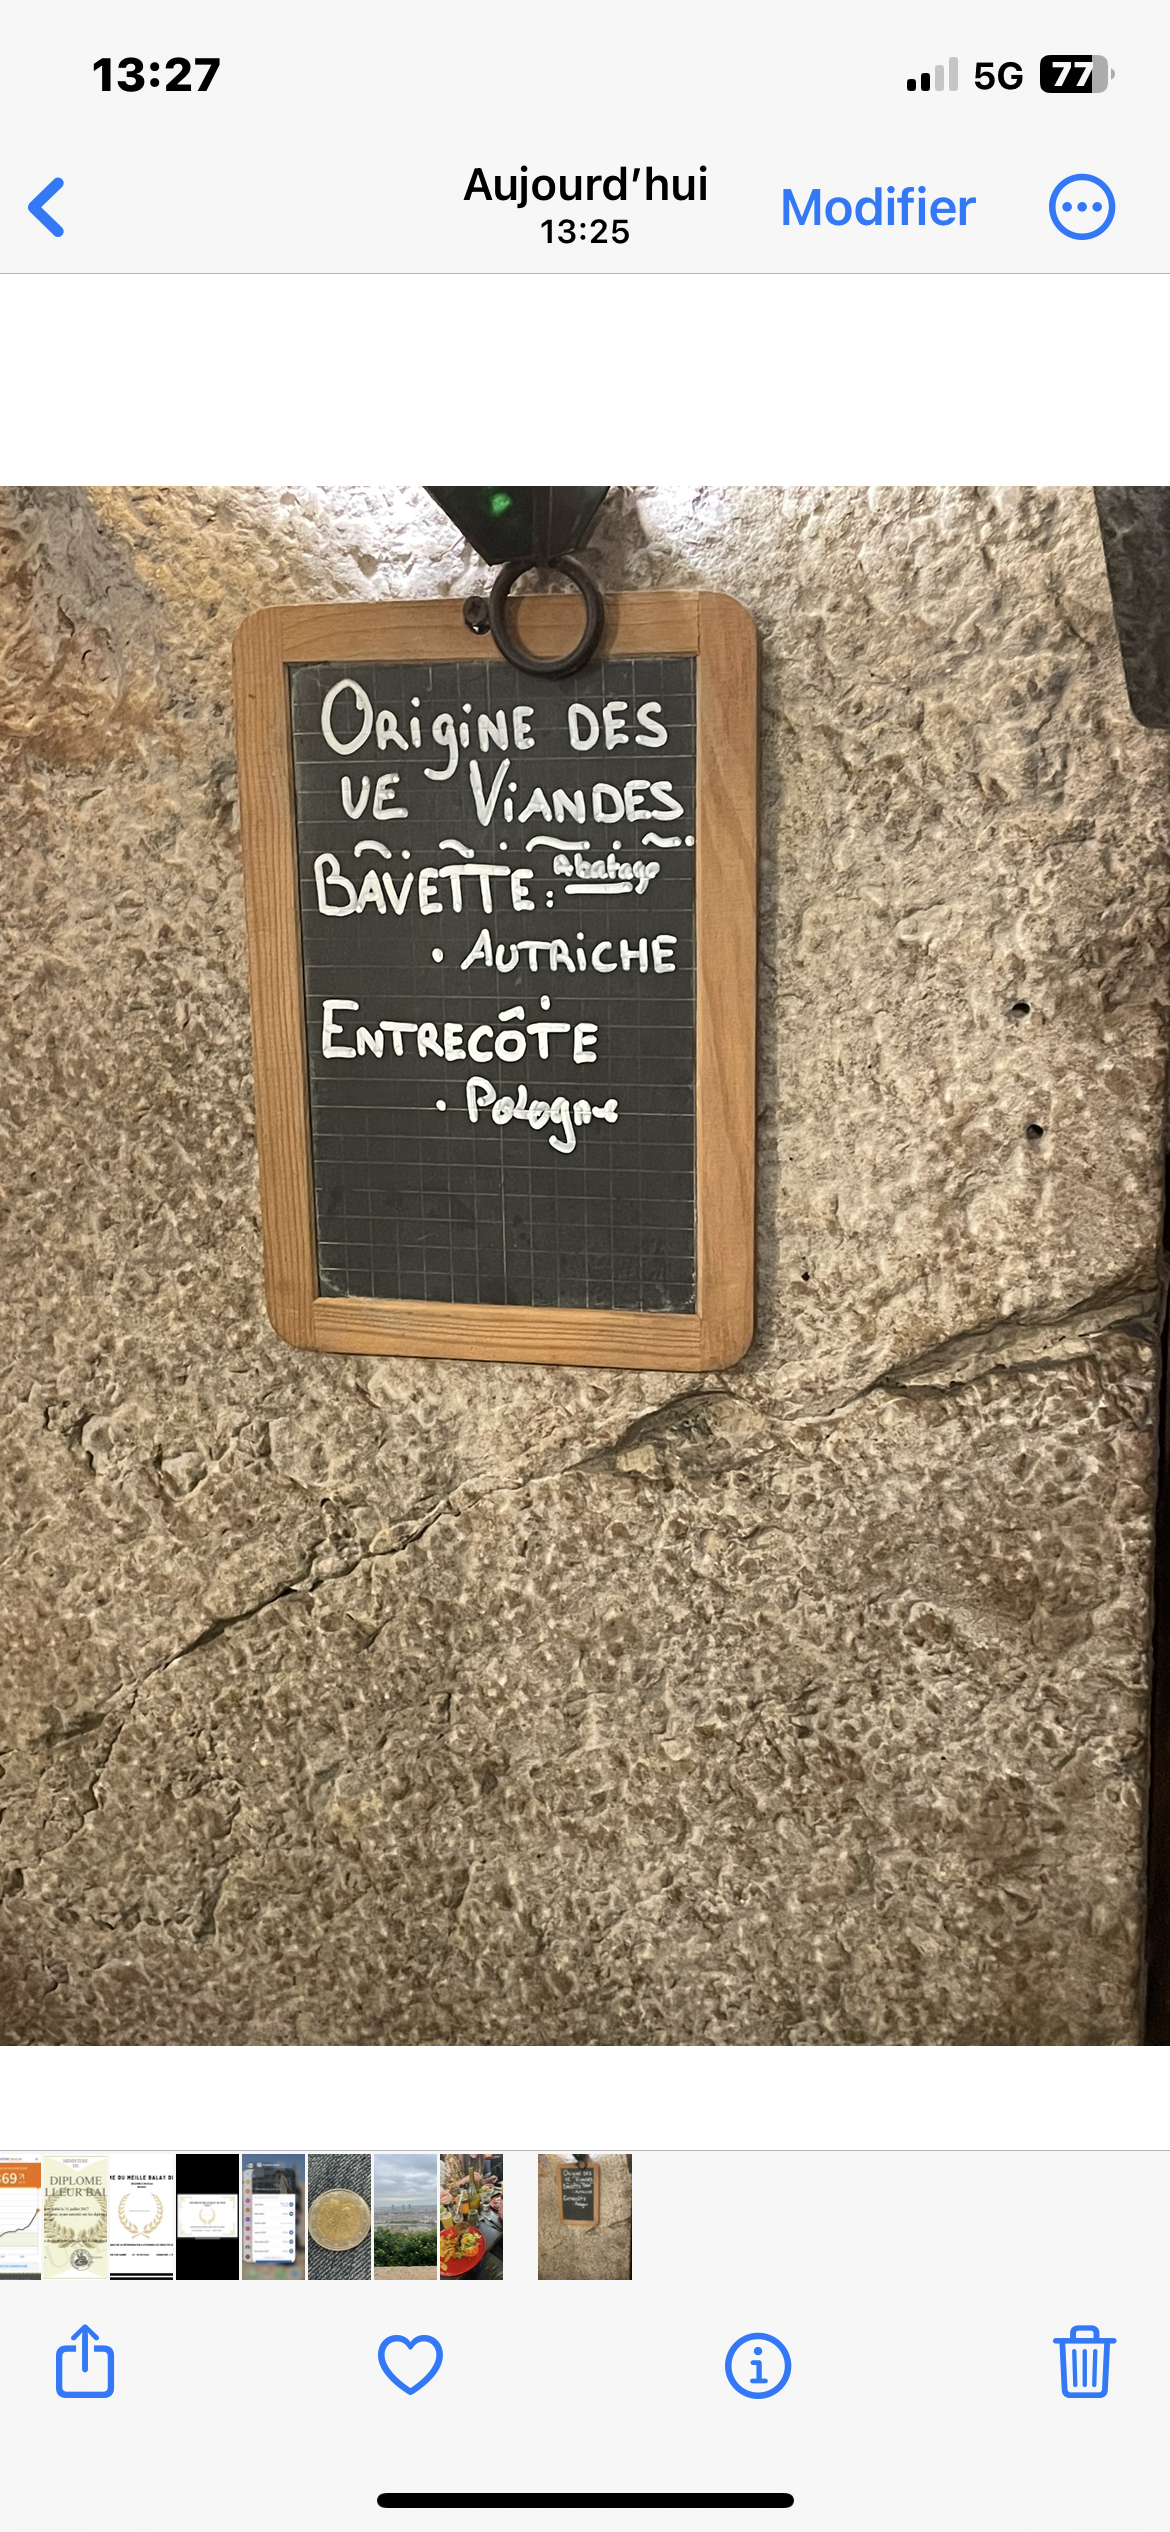 13:27
5G
77
Aujourd'hui
13:25
Modifier
ORigiNE DES
UE ViANDES
BAVETTE: Abatage
• AUTRiCHE
ENTRECÔTE
• Pologne
69
DIPLOME
LLEUR BAL
E DU MEILLE BALAT DI